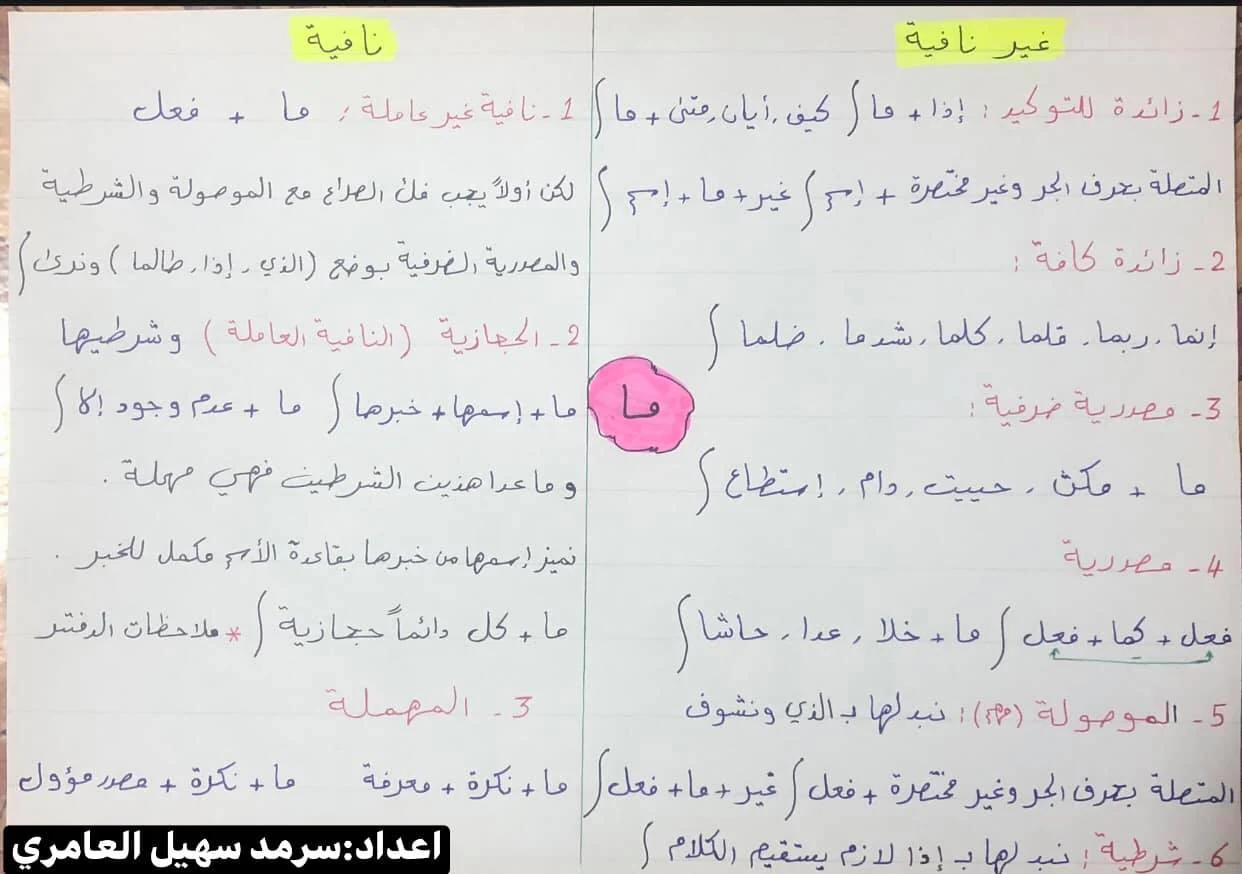 غير نافية
1- زائدة للتوكيد : إذا + ما ∫ كيف, أيان, متى + ما ∫
المتصلة بحرف الجر وغير مختصرة + إسم ∫ غير + ما + إسم ∫
2- زائدة كافة :
إنما, ربما, قلما, كلما, شدما, ضلما ∫
3- مصدرية ضرفية :
ما + مكث, حييت, دام, إستطاع ∫
4- مصدرية
فعل + كما + فعل ∫ ما + خلا, عدا, حاشا ∫
5- الموصولة (مهم) : نبدلها بـ الذي ونشوف
المتصلة بحرف الجر وغير مختصرة + فعل ∫ غير + ما + فعل ∫
6- شرطية : نبدلها بـ إذا لازم يستقيم الكلام ∫
ما
نافية
1- نافية غير عاملة : ما + فعل
لكن أولاً يجب فك الصراع مع الموصولة والشرطية
والمصدرية الضرفية بوضع (الذي, إذا, طالما) وندك ∫
2- الحجازية (النافية العاملة) وشرطيها
ما + إسمها + خبرها ∫ ما + عدم وجود إلا ∫
وماعدا هذين الشرطين فهي مهملة .
نميز إسمها من خبرها بقاعدة الأسم مكمل للخبر .
ما + كل دائماً حجازية ∫ * ملاحظات الدفتر
3- المهملة
ما + نكرة + معرفة ما + نكرة + مصدر مؤول
اعداد:سرمد سهيل العامري